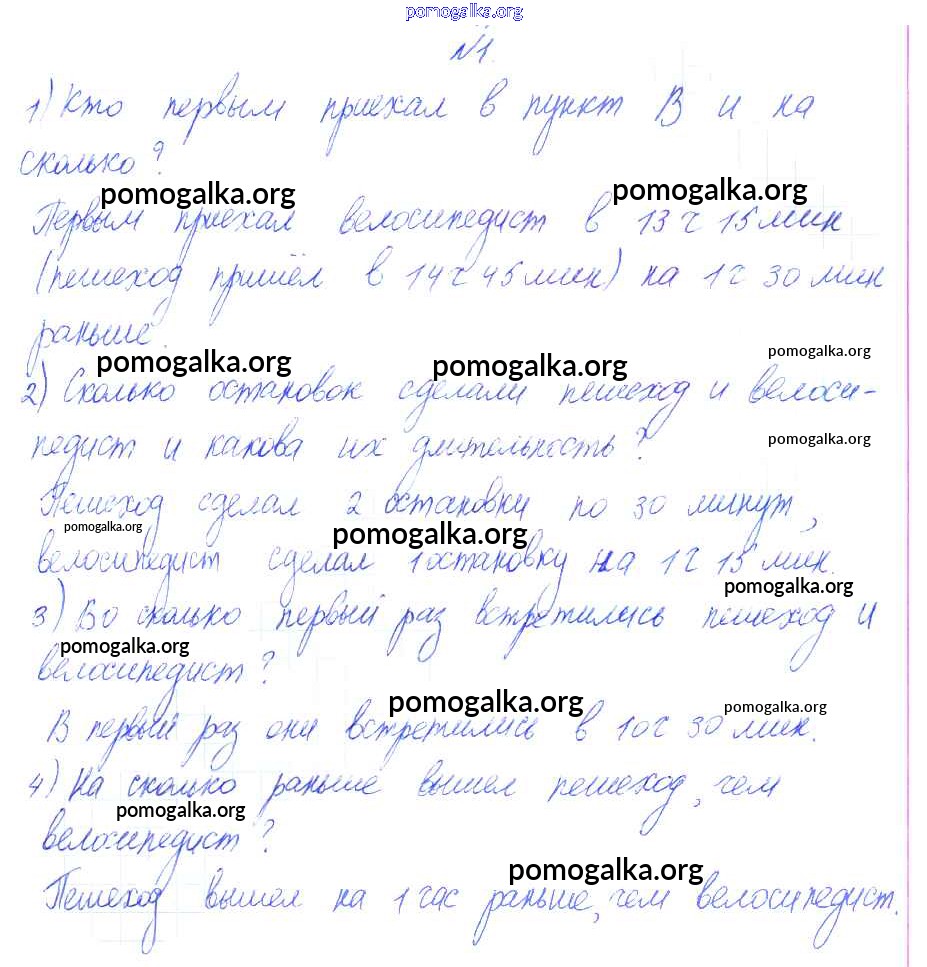 pomogalka.org
№1.
1) Кто первым приехал в пункт В и на
сколько?
pomogalka.org pomogalka.org
Первым приехал велосипедист в 13 ч 15 мин
(пешеход пришёл в 14 ч 45 мин) на 1 ч 30 мин
раньше.
pomogalka.org pomogalka.org pomogalka.org
2) Сколько остановок сделали пешеход и велоси-
педист и какова их длительность?
pomogalka.org
Пешеход сделал 2 остановки по 30 минут,
pomogalka.org pomogalka.org
велосипедист сделал 1 остановку на 1 ч 15 мин.
pomogalka.org
3) Во сколько первый раз встретились пешеход и
pomogalka.org
велосипедист?
pomogalka.org pomogalka.org
В первый раз они встретились в 10 ч 30 мин.
4) На сколько раньше вышел пешеход, чем
pomogalka.org
велосипедист?
pomogalka.org
Пешеход вышел на 1 час раньше, чем велосипедист.